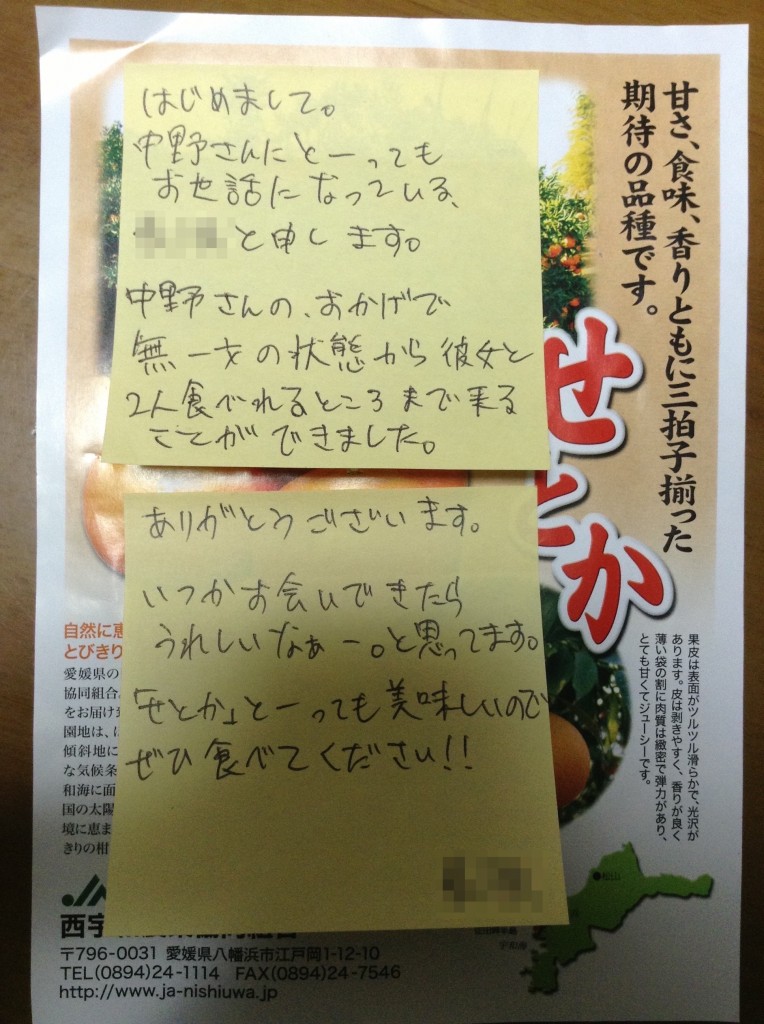 はじめまして。
中野さんにとーっても
お世話になっている、
と申します。
中野さんの、おかげで
無一文の状態から彼女と
2人食べれるところまで来る
ことができました。
ありがとうございます。
いつかお会いできたら
うれしいなぁー。と思ってます。
「せとか」とーっても美味しいので
ぜひ食べてください!!
甘さ、食味、香りともに三拍子揃った
期待の品種です。
せとか
果皮は表面がツルツル滑らかで、光沢が
あります。皮は剥きやすく、香りが良く
薄い袋の割に肉質は緻密で弾力があり、
とても甘くてジューシーです。
自然に恵
とびきり
愛媛県の
協同組合
をお届け
園地は、
傾斜地に
な気候条
和海に面
国の太陽
境に恵ま
きりの柑
松山
宇和海
JA
西宇
〒796-0031 愛媛県八幡浜市江戸岡1-12-10
TEL(0894)24-1114 FAX(0894)24-7546
http://www.ja-nishiuwa.jp